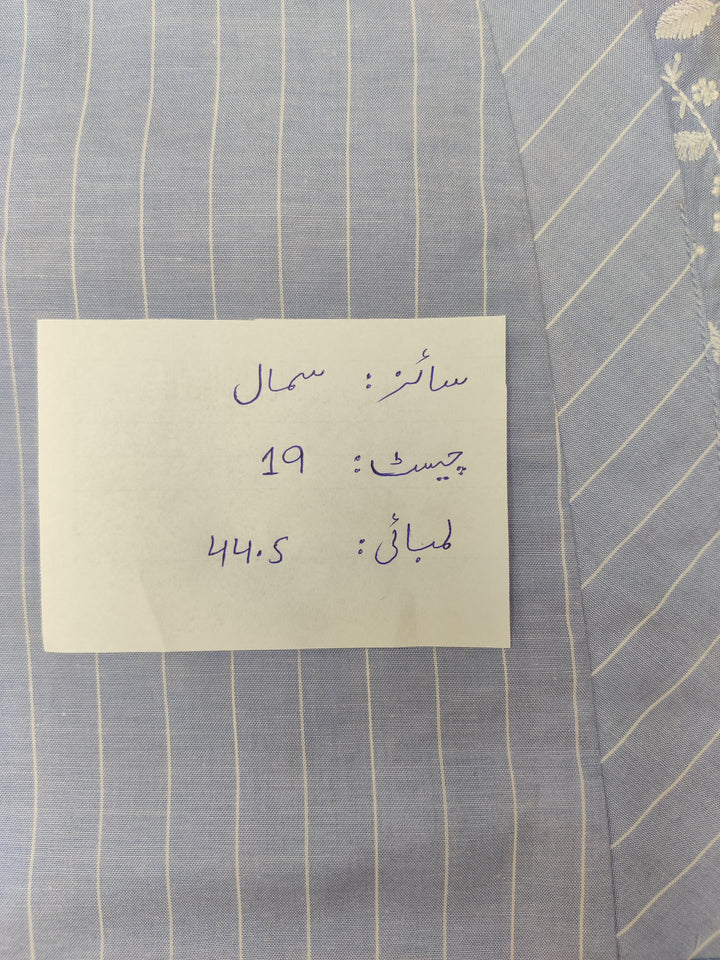 سائز: سمال
چیسٹ: 19
لمبائی: 44.5